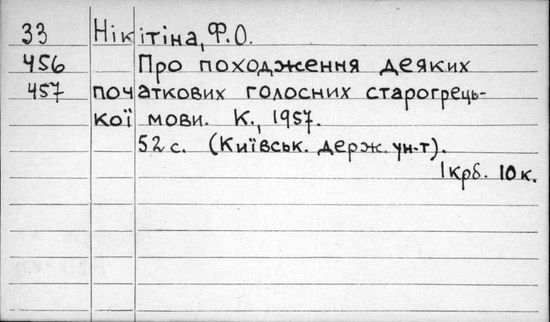 33 Нікітіна, Ф.О.
456 Про походження деяких
457 початкових голосних старогрець-
кої мови. К., 1957.
52 с. (Київськ. держ. ун-т).
1 крб. 10 к.